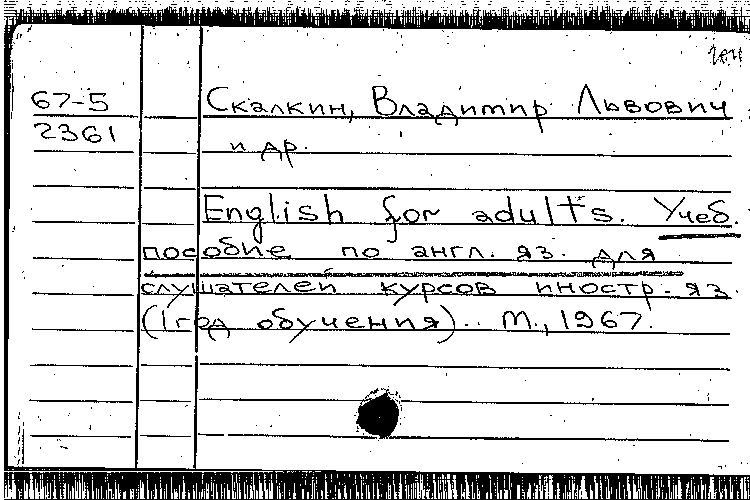 67-5
2361
Скалкин, Владимир Львович
и др.
English for adults. Учеб.
пособие по англ. яз. для
слушателей курсов иностр. яз.
(1 год обучения). М., 1967.